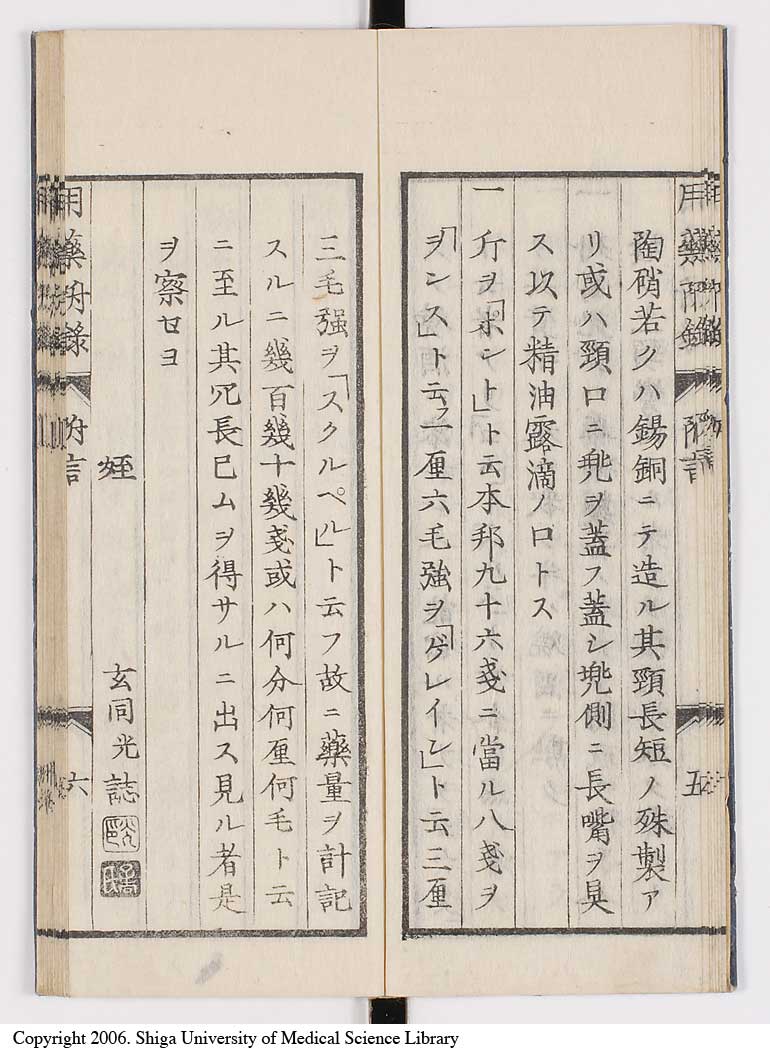 用藥附録 附言 五
陶硝若クハ錫銅ニテ造ル其頸長短ノ殊製ア
リ或ハ頸口ニ兠ヲ蓋フ蓋シ兠側ニ長嘴ヲ具
ス以テ精油露滴ノ口トス
一 斤ヲ「ポント」ト云本邦九十六戔ニ當ル八戔ヲ
「ヲンス」ト云フ一厘六毛強ヲ「ゲレイン」ト云三厘
三毛強ヲ「スクルペル」ト云フ故ニ藥量ヲ計記
スルニ幾百幾十幾戔或ハ何分何厘何毛ト云
ニ至ル其冗長已ムヲ得サルニ出ス見ル者是
ヲ察セヨ
姪 玄同光誌
用藥附録 附言 六
Copyright 2006. Shiga University of Medical Science Library